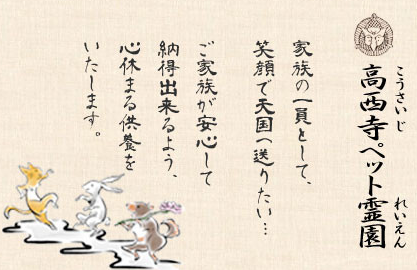 こうさいじ
れいえん
高西寺ペット霊園
家族の一員として、
笑顔で天国へ送りたい…
ご家族が安心して
納得出来るよう、
心休まる供養を
いたします。